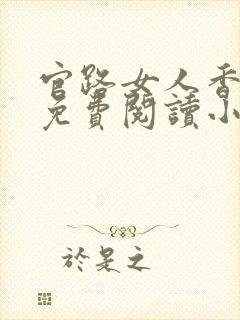 官路女人香
免費閱讀小
於是之